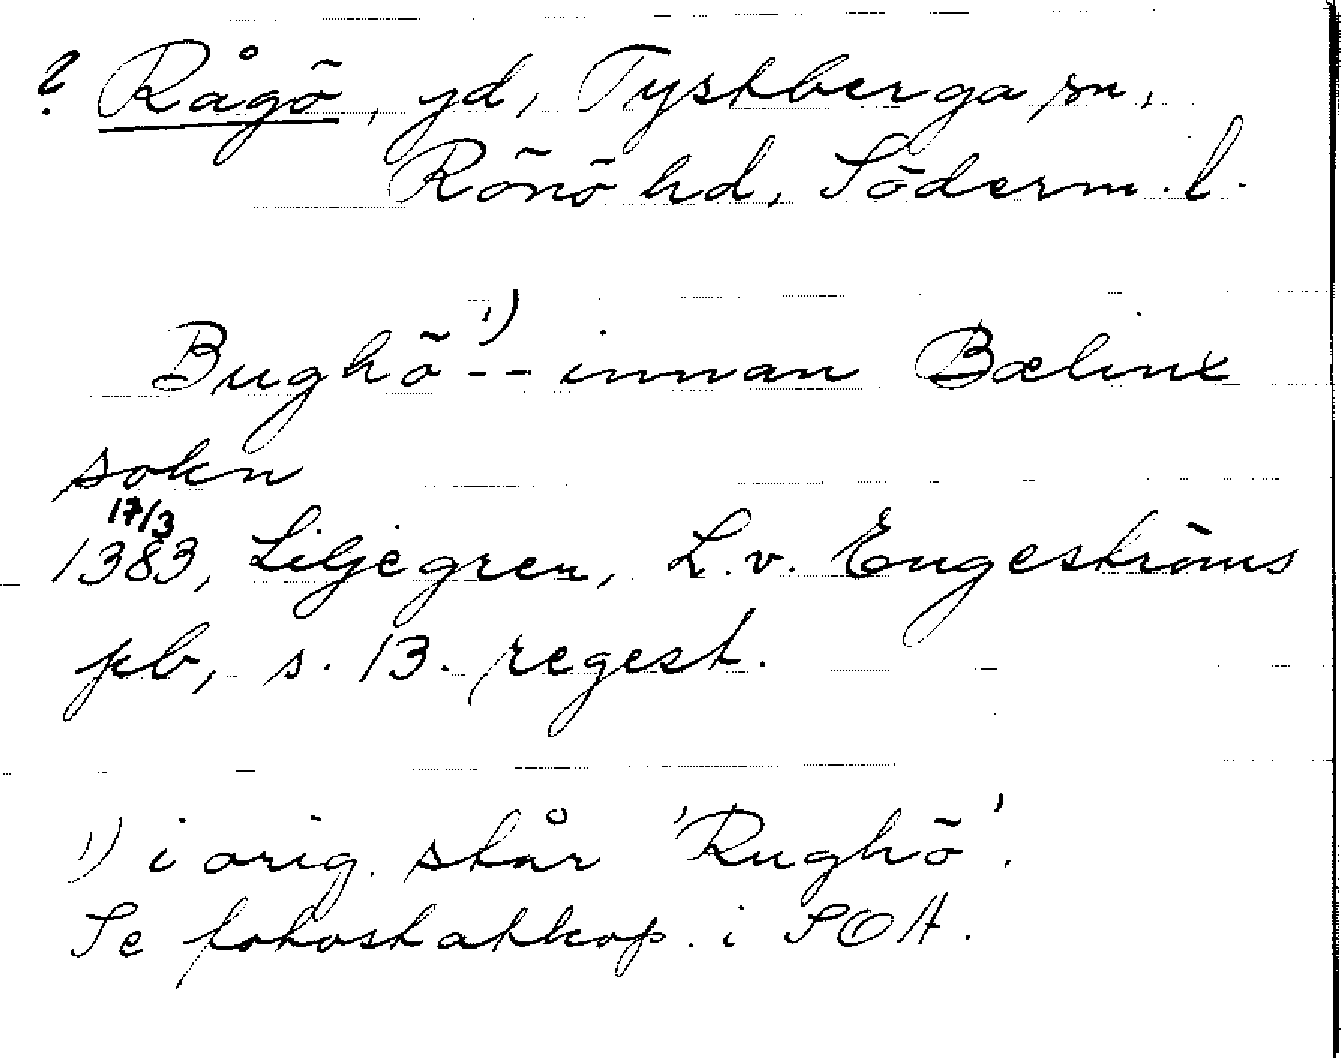 ? Rågö, gd, Tystberga sn,
Rönö hd, Söderm. l.
Bughö¹⁾ -- innan Bælinx
sokn
17/3
1383, Liljegren, L. v. Engeströms
pb, s. 13. regest.
¹⁾ i orig. står 'Rughö'.
Se fotostatkop. i SOA.